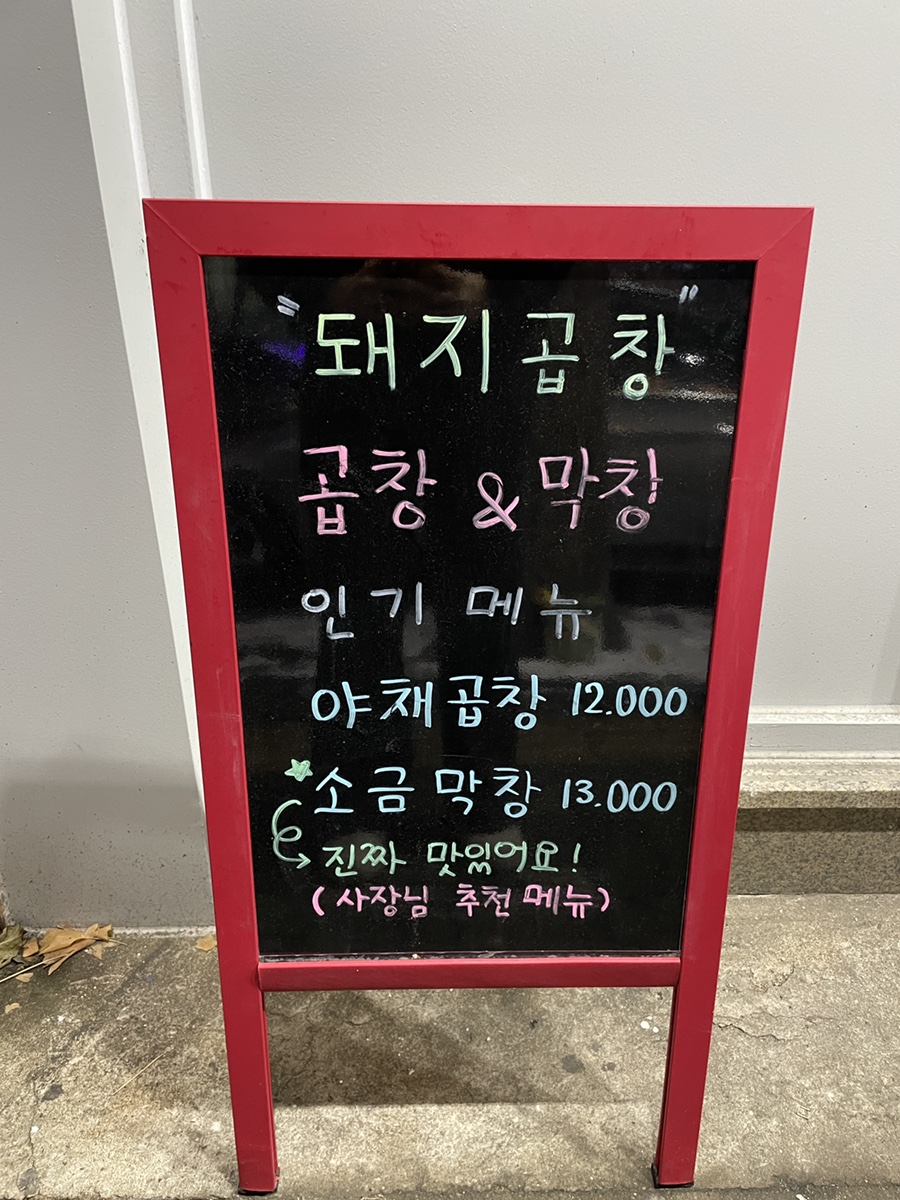 "돼지곱창"
곱창 & 막창
인기 메뉴
야채곱창 12.000
소금막창 13.000
진짜 맛있어요!
(사장님 추천 메뉴)